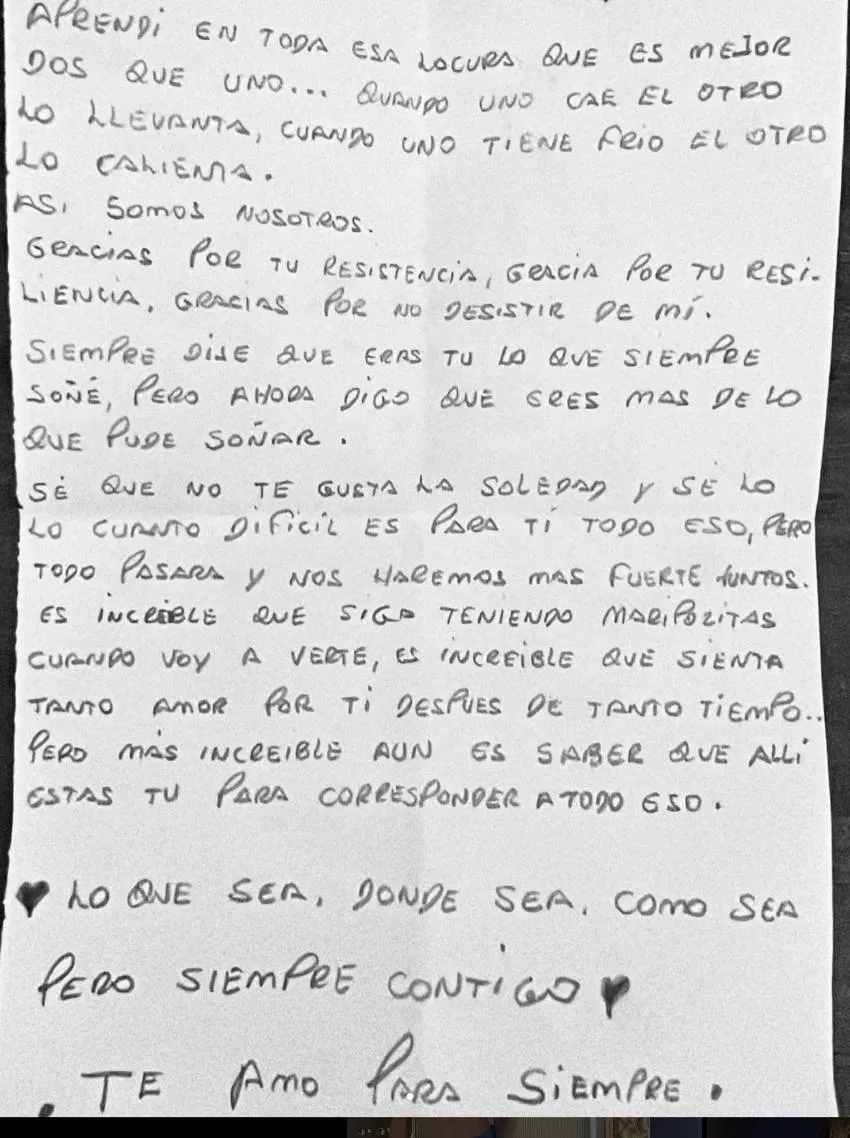 APRENDI EN TODA ESA LOCURA QUE ES MEJOR
DOS QUE UNO... QUANDO UNO CAE EL OTRO
LO LLEVANTA, CUANDO UNO TIENE FRIO EL OTRO
LO CALIENTA.
ASI SOMOS NOSOTROS.
GRACIAS POR TU RESISTENCIA, GRACIA POR TU RESI-
LIENCIA, GRACIAS POR NO DESISTIR DE MÍ.
SIEMPRE DIJE QUE ERAS TU LO QUE SIEMPRE
SOÑÉ, PERO AHORA DIGO QUE ERES MAS DE LO
QUE PUDE SOÑAR.
SÉ QUE NO TE GUSTA LA SOLEDAD Y SE LO
LO CUANTO DIFICIL ES PARA TI TODO ESO, PERO
TODO PASARA Y NOS HAREMOS MAS FUERTE JUNTOS.
ES INCREIBLE QUE SIGA TENIENDO MARIPOZITAS
CUANDO VOY A VERTE, ES INCREIBLE QUE SIENTA
TANTO AMOR POR TI DESPUES DE TANTO TIEMPO..
PERO MÁS INCREIBLE AUN ES SABER QUE ALLÍ
ESTAS TU PARA CORRESPONDER A TODO ESO.
♥ LO QUE SEA, DONDE SEA, COMO SEA
PERO SIEMPRE CONTIGO ♥
. TE AMO PARA SIEMPRE.